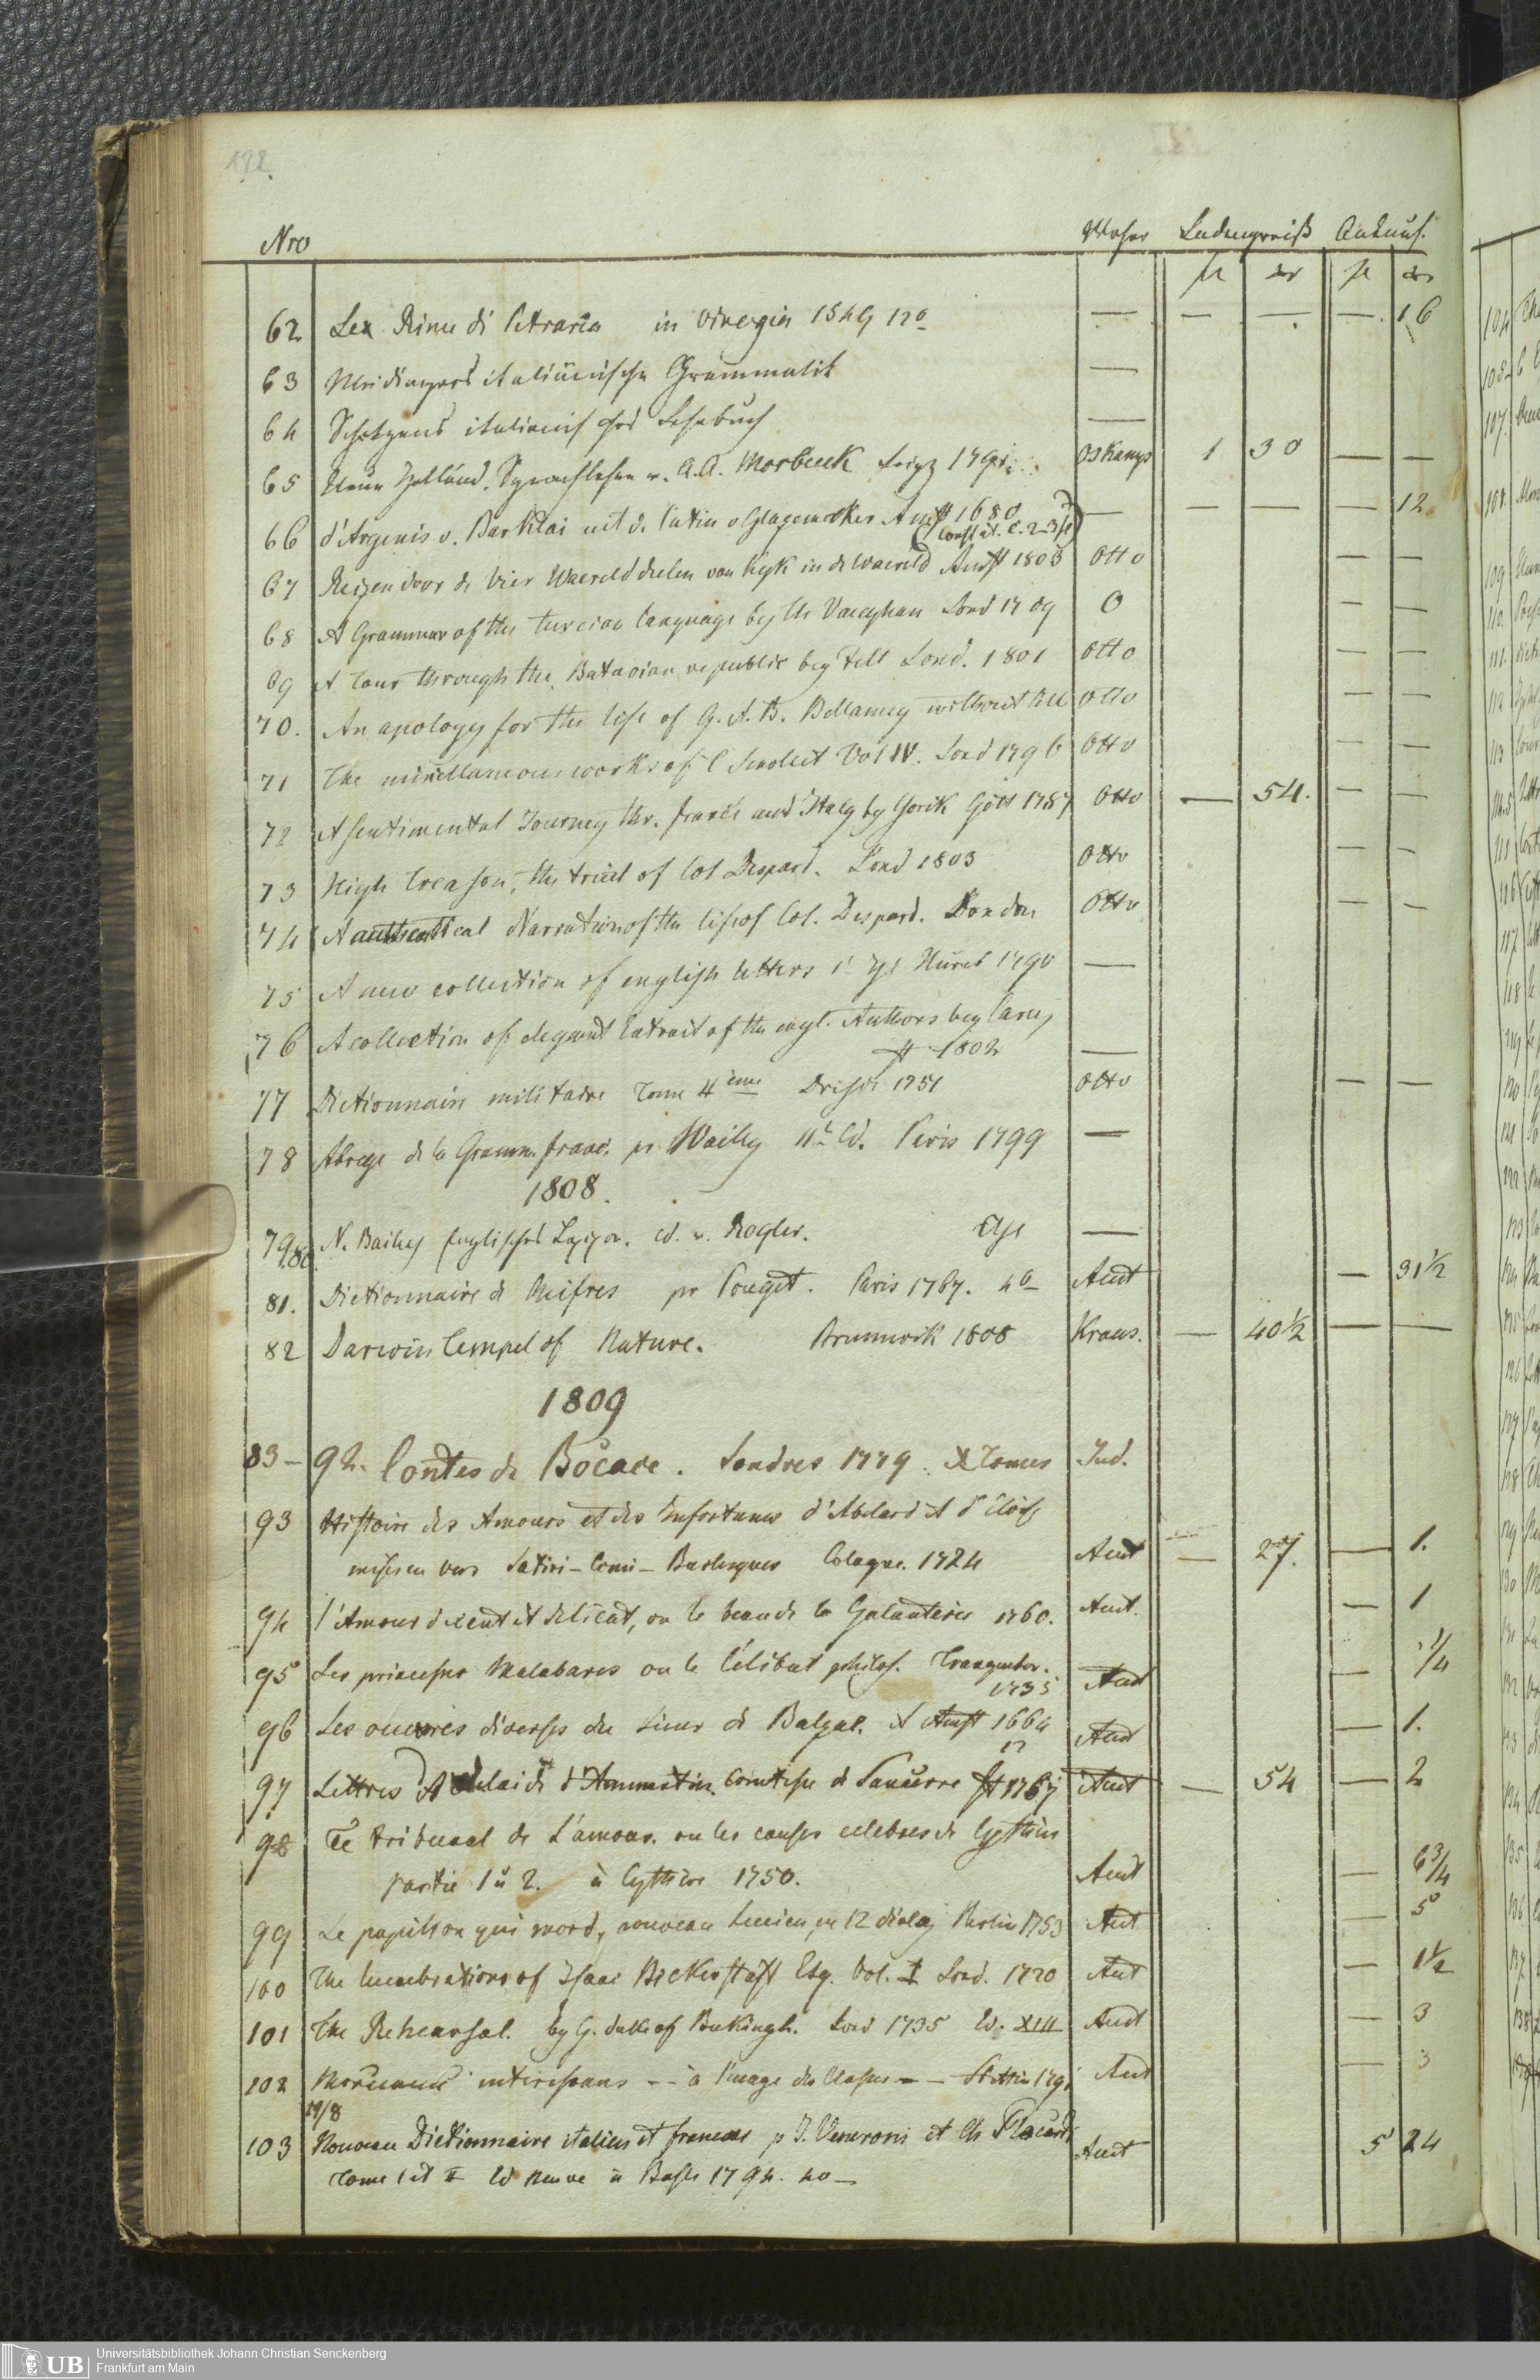 192.
Nro Woher Ladenpreiß Ankauf.
fl xr fl xr
62 Le Rime di Petrarca in Vinegia 1549 12o — — — — 16
63 Meidingers italiänische Grammatik —
64 italienisches Lesebuch —
65 Neue Holländ. Sprachlehre v. A. A. Moerbeek Leipz 1791 Oskamp 1 30 — —
66 d'Argenis v. Barklai uit de Latin Amst 1680 — — — — 12
67 Reizen door de vier Waerelddeelen van Kijk in de Waereld Amst 1803 Otto — —
68 A Grammar of the Turcian language by Th Vaughan Lond 1709 O — —
69 A Tour through the Batavian republic by Fell Lond. 1801 Otto — —
70. An apology for the life of G. A. B. Bellamy without titl Otto — —
71 The miscellaneous works of T Smolett Vol IV. Lond 1796 Otto — —
72 A sentimental Journey thr. France and Italy by Yorik Gött 1787 Otto — 54. — —
73 High Treason, the trial of Col Despard. Lond 1803 Otto — —
74 Authentical Narration of the life of Col. Despard. London Otto — —
75 A new collection of english letters 1790 —
76 A collection of elegant Extrait of the engl. Authors by
1802 —
77 Dictionnaire militaire Tome 4ème Dresde 1751 Otto — —
78 Abrege de la Gramm. franc. pr Wailly 11e Ed. Paris 1799 —
1808.
79.80. N. Bailey Englisches Lexicon. ed. v. —
81. Dictionnaire de Chifres pr Pouget. Paris 1767. 4o Auct — 31 1/2
82 Darwin Tempel of Nature. Brunswik 1808 Kraus. — 40 1/2 — —
1809
83 — 92. Contes de Bocace. Londres 1779. X Tomes Jud.
93 Histoire des Amours et des Infortunes d'Abelard et d'Elois
mises en vers Satiri-Comi-Burlesques Cologne. 1724 Auct — 27. — 1.
94 l'Amour decent et delicat, ou le beau de la Galanterie 1760. Auct. — 1
95 Les princesses Malabares ou le Célibat philos. Tranquebar.
1735 Auct — 1/4
96 Les oeuvres diverses du Sieur de Balzac. A Amst 1664 Auct — 1.
97 Lettres d'Adelaide d'Ammartin. Comtesse de Sancerre 1767 Auct — 54 — 2
98 Le tribunal de l'amour. ou les causes celebres de Cythere
partie 1 u 2. à Cythere 1750. Auct — 6 3/4
99 Le papillon qui mord, nouveau Lucien, en 12 dialog Berlin 1753 Auct — 5
100 The lucubrations of Isaac Bickerstaff Esq. Vol. I Lond. 1720 Auct — 1 1/2
101 The Rehearsal. by G. duke of Bukingh. Lond 1735 Ed. XIII Auct — 3
102 Morceaux interessans -- à l'usage des Classes — Stettin 1791 Auct — 3
103 Nouveau Dictionnaire italien et francais p J. Veneroni et Ch Placardi
Tome I et II Ed neuve à Basle 1794. 4o — Auct 5 24
Universitätsbibliothek Johann Christian Senckenberg
Frankfurt am Main
UB